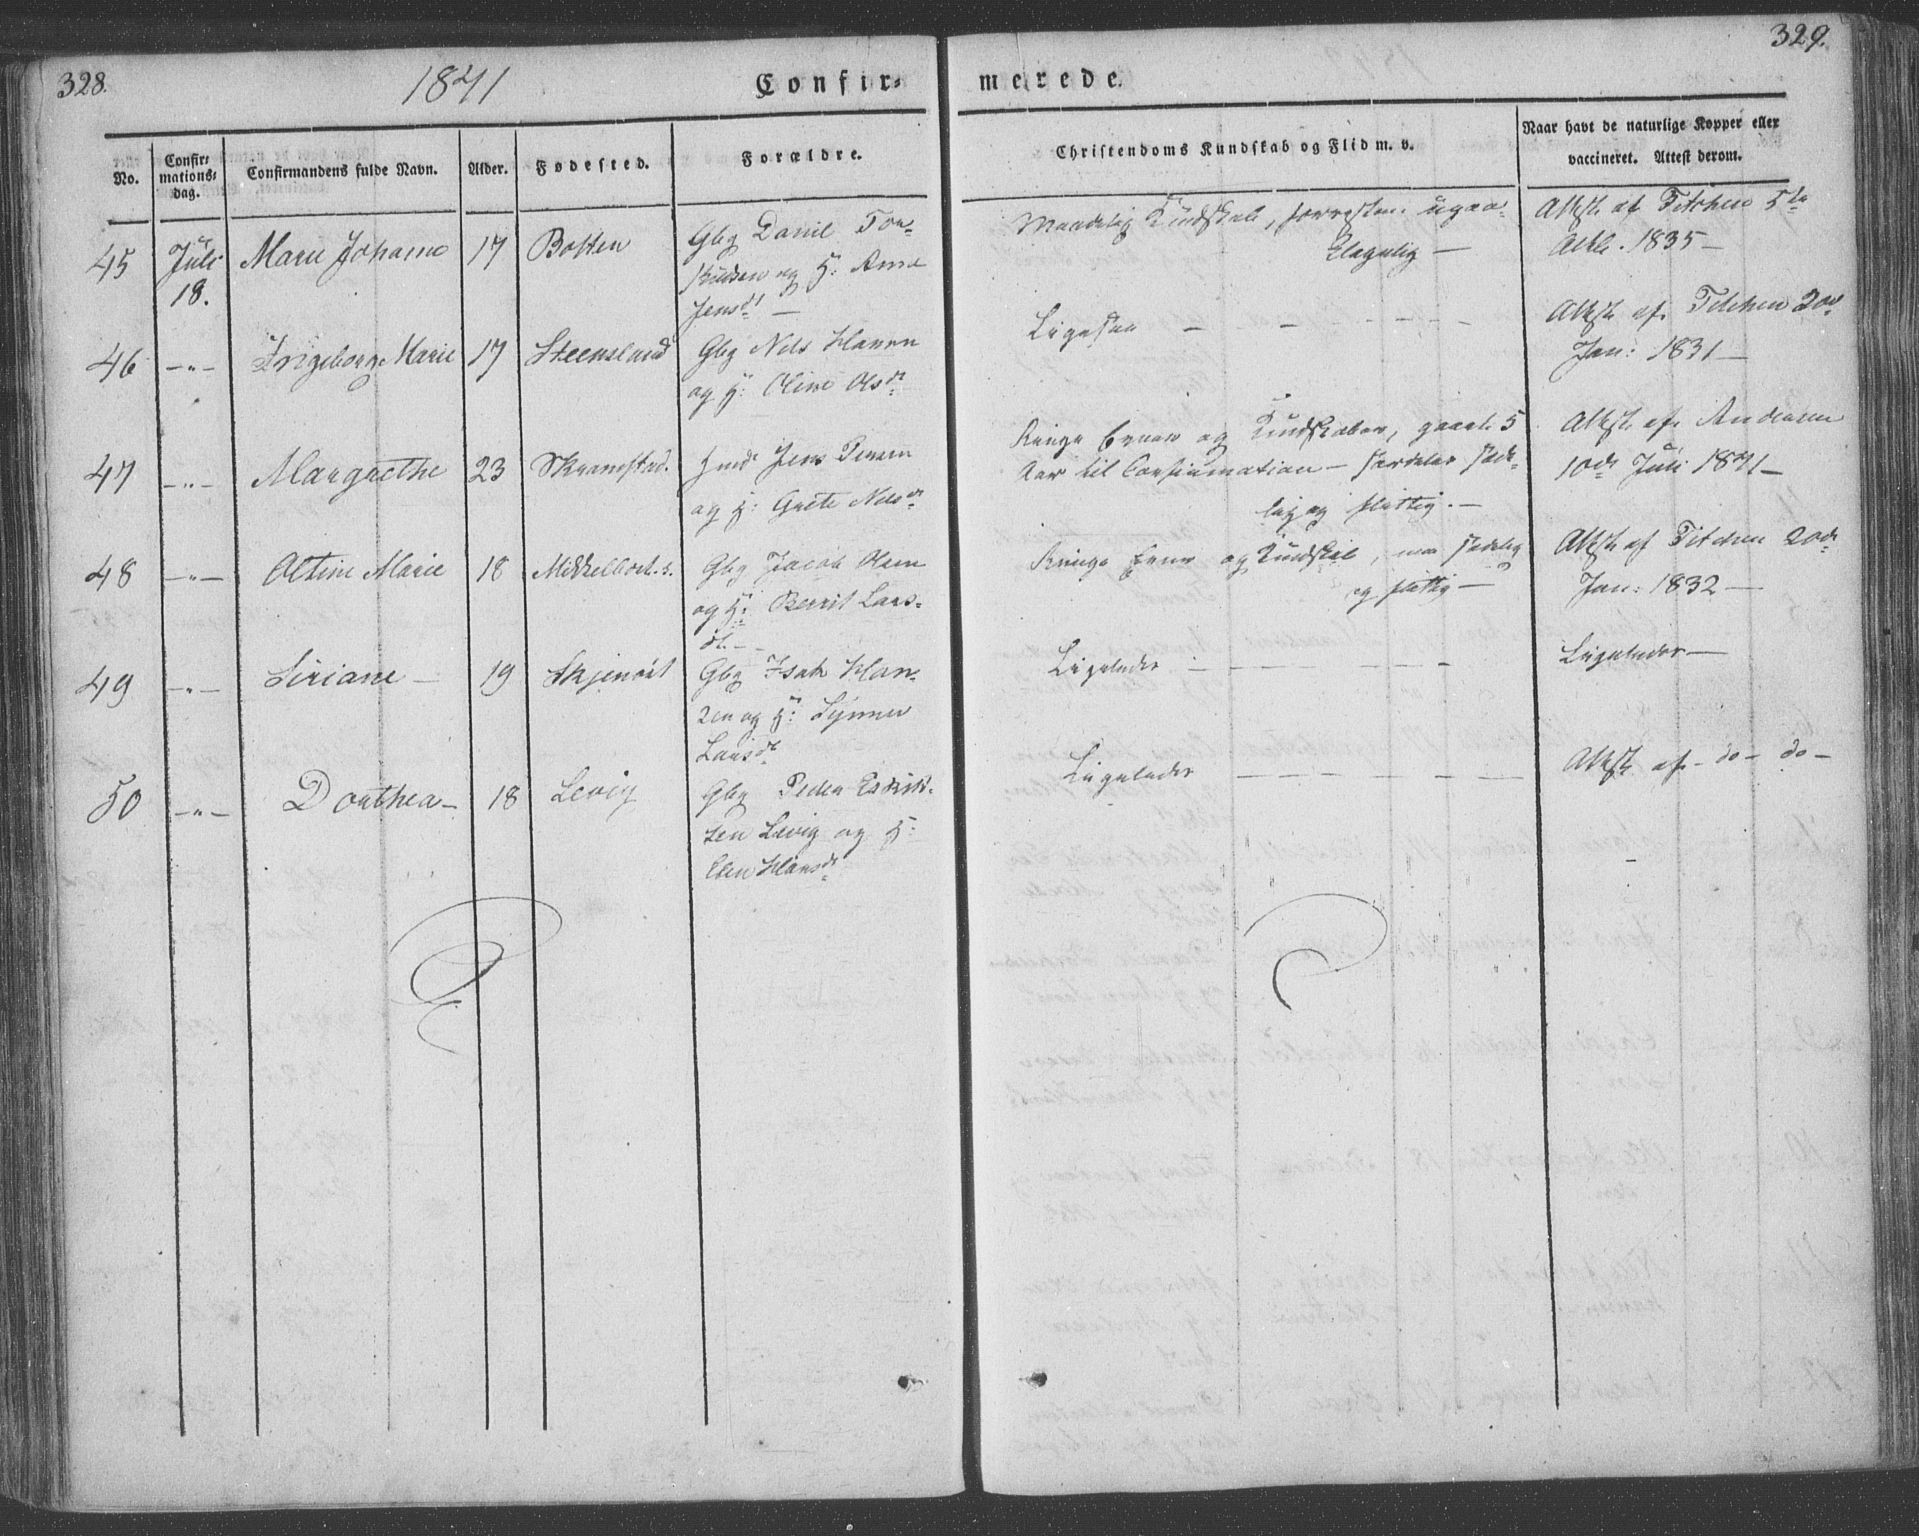 328.
1841
Confir-
merede.
329.
No.
Confir-
mations-
dag.
Confirmandens fulde Navn.
Alder.
Fødested.
Forældre.
Christendoms Kundskab og Flid m. v.
Naar havt de naturlige Kopper eller
vaccineret. Attest derom.
45 Juli 18. Marie Johanna 17 Botten
Gbg Daniel Tor-
kildsen og H: Ane
Jensdt —
Maadelig Kundskab, forresten
—
Attst. af Titchen 5te
1835 —
46 — " — Ingeborg Marie 17 Steensland
Gbg Nels Hansen
og H: Oline Olsdt
Ligesaa — — — — — —
Attst. af Titchen 20de
Jan: 1831 —
47 — " — Margrethe 23 Skramstad.
Jens
og H: Grete Nelsdt
Ringe Evner og Kundskaber, 5
Aar til Confirmation —
lig og flittig. —
Attst. af Andersen
10de Juli 1841 —
48 — " — Oltine Marie 18
Gbg Jacob Olsen
og H: Berrit Lars-
dt. —
Ringe Evner og Kundskab, men sædelig
og flittig —
Attst af Titchen 20de
Jan: 1832 —
49 — " — Siriane — 19
Gbg Isak Han-
sen og H:
Larsdt
Ligeledes — — — — —
Ligeledes —
50 — " — Dorthea — 18 Levig
Gbg Peder
sen Levig og H:
Elen Hansdt
Ligeledes — — — — —
Attst. af — do — do —